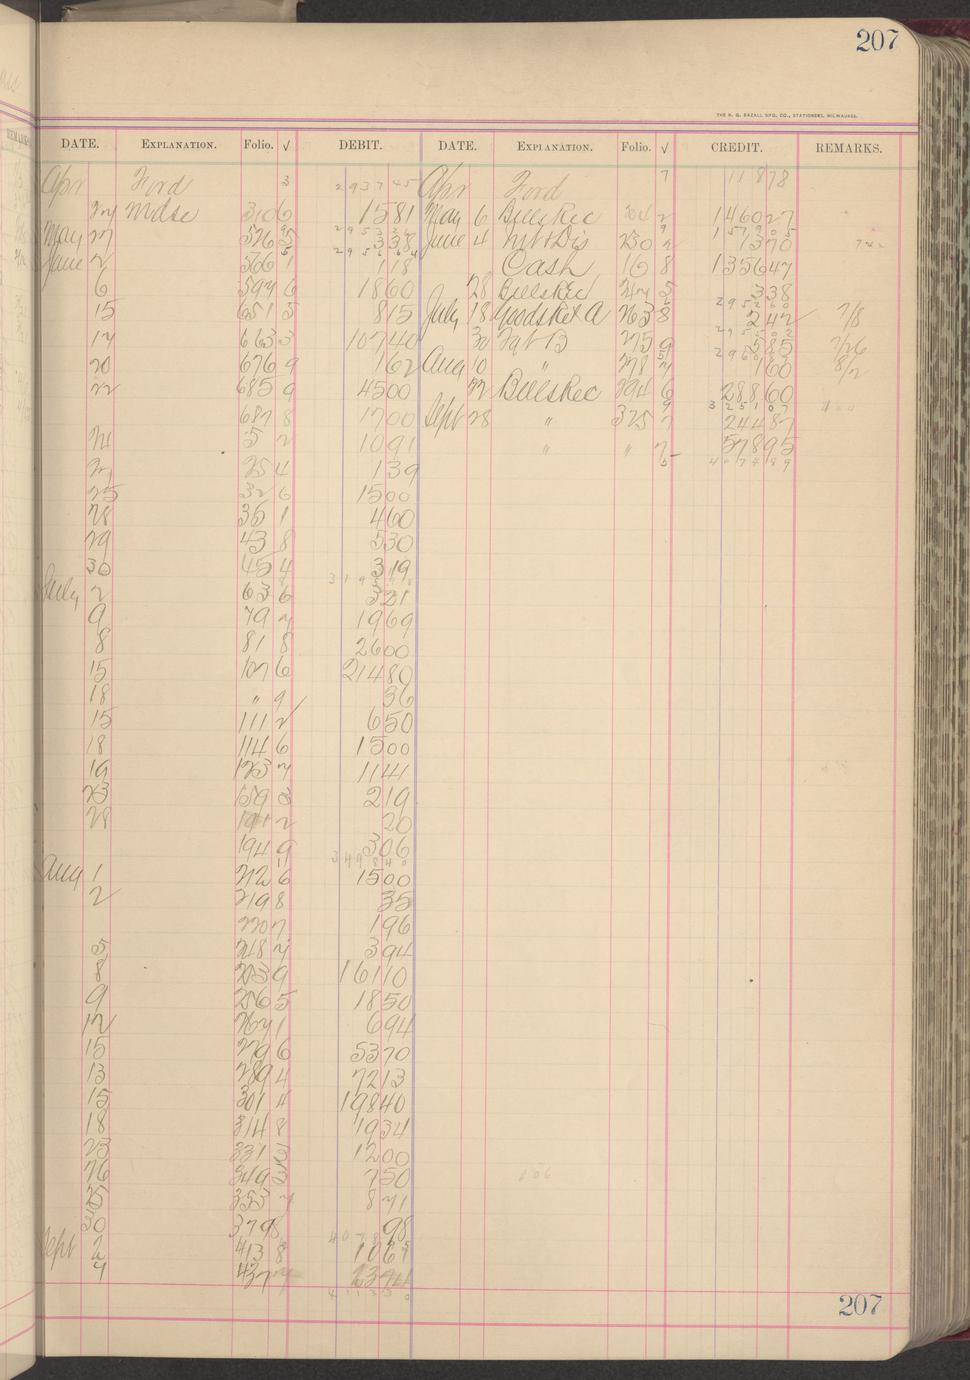 207
THE H. G. RAZALL MFG. CO., STATIONERS, MILWAUKEE.
DATE. EXPLANATION. Folio. √ DEBIT. DATE. EXPLANATION. Folio. √ CREDIT. REMARKS.
Apr Ford 3 293745 Apr Ford 7 11878
27 Mdse 310 6 1581 May 6 Bills Rec 204 2 146027
May 27 526 5 338 June 4 Int & Dis 230 2 1370
June 2 566 1 118 Cash 16 8 135647
6 594 6 1860 28 Bills Rec 5 338
15 651 5 815 July 18 Goods Ret A 263 8 242 7/8
17 663 3 10740 30 " B 275 9 585 7/26
20 676 9 162 Aug 10 " 278 7 160 8/2
22 685 9 4500 22 Bills Rec 294 6 28860
687 8 1700 Sept 28 " 325 7 24487
24 5 2 1091 " " 7 57895
27 25 4 139
25 32 6 1500
28 36 1 460
29 43 8 530
30 45 4 319
July 2 63 6 321
9 79 7 1969
8 81 8 2600
15 107 6 21480
18 " 9 36
15 111 2 650
18 114 6 1500
19 123 7 1144
23 159 3 219
28 191 2 20
194 9 306
Aug 1 212 6 1500
2 219 8 35
220 7 196
5 248 7 394
8 253 9 16110
9 256 5 1850
12 267 1 694
15 279 6 5370
13 289 4 7213
15 301 4 19840
18 314 8 1934
23 331 3 1200
26 349 3 750
25 353 7 871
30 379 8 98
Sept 2 413 8 1067
4 437 7 2394
207